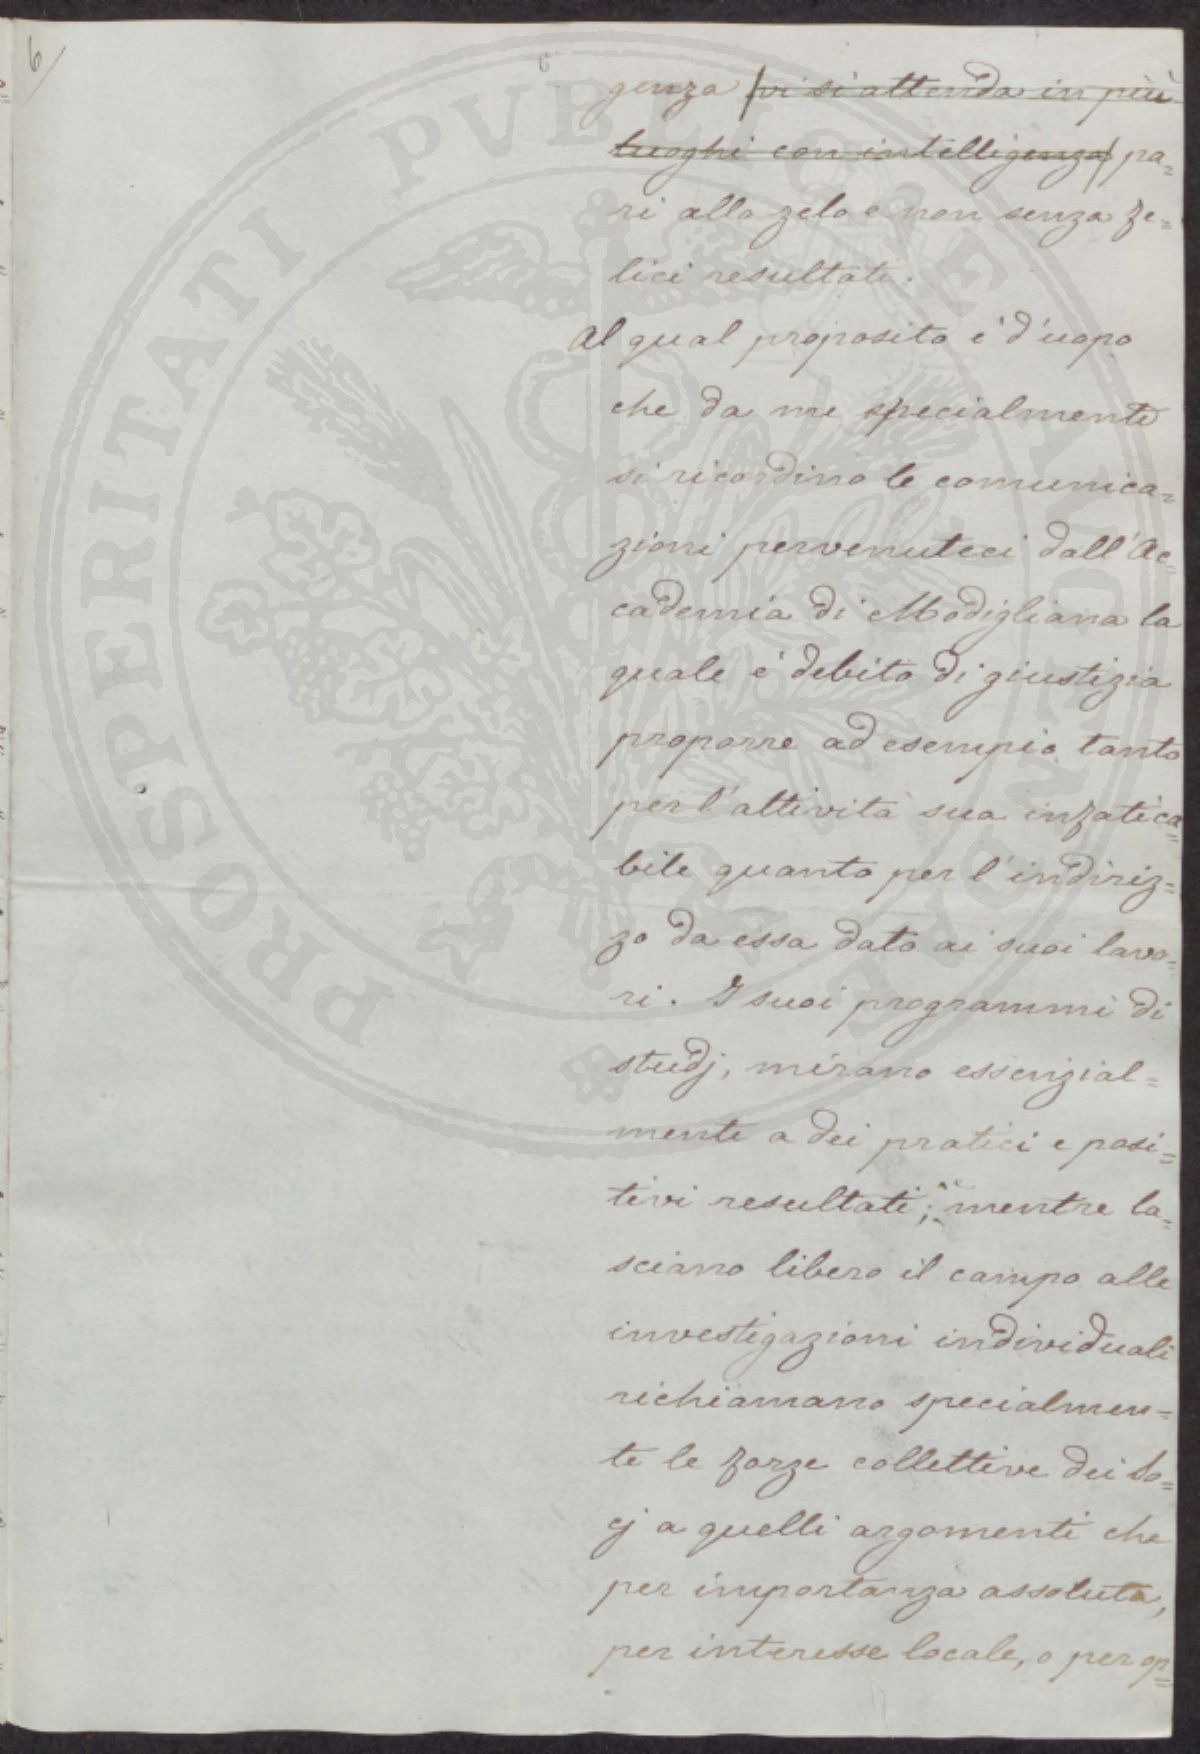 6
genza vi si attenda in più
luoghi con intelligenza pa=
ri allo zelo e non senza fe=
lici resultati.
Al qual proposito é d'uopo
che da me specialmente
si ricordino le comunica=
zioni pervenuteci dall'Ac
cademia di Modigliana la
quale é debito di giustizia
proporre ad esempio tanto
per l'attività sua infatica=
bile quanto per l'indiriz=
zo da essa dato ai suoi lavo=
ri. I suoi programmi di
studj, mirano essenzial=
mente a dei pratici e posi=
tivi resultati; mentre la=
sciano libero il campo alle
investigazioni individuali
richiamano specialmen=
te le forze collettive dei So=
cj a quelli argomenti che
per importanza assoluta,
per interesse locale, o per op=
PROSPERITATI PVBLICAE AVGENDAE